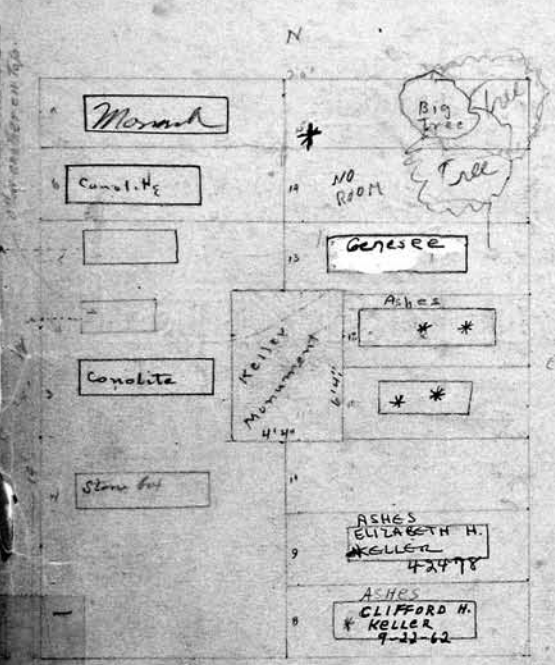 N
Monarch
Big
Tree
Tree
Tree
Conolite
14
NO
ROOM
13
Genesee
Ashes
12
* *
Keller
Monument
6'4"
4'4"
Conolite
* *
11
Stone box
9
ASHES
ELIZABETH H.
KELLER
42478
8
ASHES
* CLIFFORD H.
KELLER
9-22-62